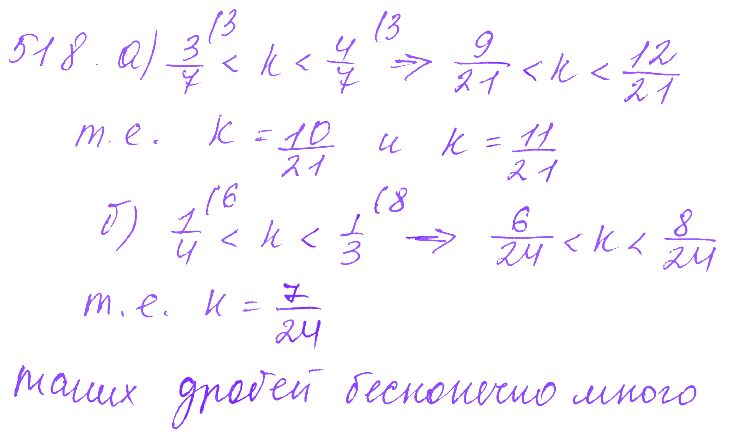 518. а) 3/7 (3 < к < 4/7 (3 => 9/21 < к < 12/21
т.е. к = 10/21 и к = 11/21
б) 1/4 (6 < к < 1/3 (8 → 6/24 < к < 8/24
т.е. к = 7/24
таких дробей бесконечно много